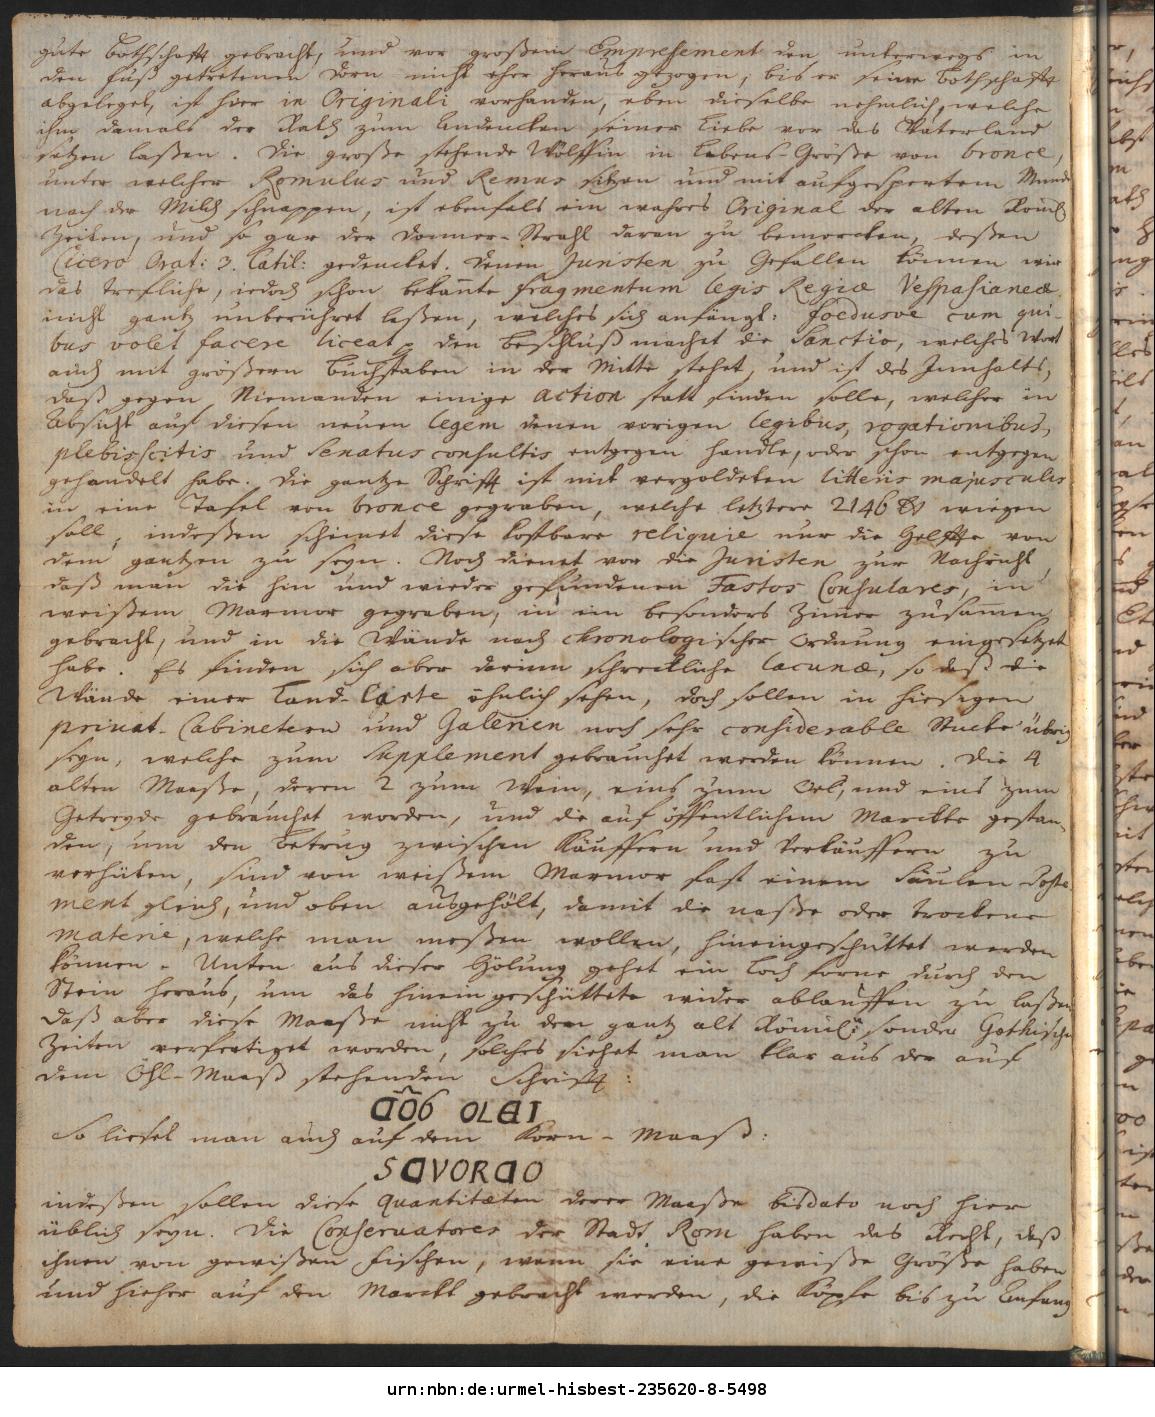 gute Bothschafft gebracht, und vor großem Empressement den unterwegs in
den Fuß getretenen Dorn nicht eher heraus gezogen, biß er seine Bothschafft
abgeleget, ist hier in Originali vorhanden, eben dieselbe nehmlich, welche
ihm damals der Rath zum Andencken seiner Liebe vor das Vaterland
setzen laßen. Die große stehende Wölffin in Lebens-Größe von bronce,
unter welcher Romulus und Remus sitzen und mit aufgespertem Munde
nach der Milch schnappen, ist ebenfals ein wahres Original der alten Röml.
Zeiten, und so gar der Donner-Strahl daran zu bemercken, deßen
Cicero Orat: 3. Catil: gedencket. Denen Juristen zu Gefallen können wir
das trefliche, iedoch schon bekañte fragmentum legis Regiæ Vespasianeæ
nicht gantz unberühret laßen, welches sich anfängt: foedusve cum qui-
bus volet facere liceat, den Beschluß machet die Sanctio, welches Wort
auch mit größern Buchstaben in der Mitte stehet, und ist des Innhalts,
daß gegen Niemanden einige action statt finden solle, welcher in
Absicht auf diesen neuen legem denen vorigen legibus, rogationibus,
plebisscitis und Senatus consultis entgegen handle, oder schon entgegen
gehandelt habe. Die gantze Schrifft ist mit vergoldeten litteris majusculis
in eine Tafel von bronce gegraben, welche letztere 2146 ℔ wiegen
soll, indeßen scheinet diese kostbare reliquie nur die Helffte von
dem gantzen zu seyn. Noch dienet vor die Juristen zur Nachricht,
daß man die hin und wieder gefundenen Fastos Consulares, in
weißem Marmor gegraben, in ein besonders Zim̃er zusam̃en
gebracht, und in die Wände nach chronologischer Ordnung eingesetzet
habe. Es finden sich aber darinn schreckliche lacunæ, so daß die
Wände einer Land-Carte ähnlich sehen, doch sollen in hiesigen
privat-Cabinetern und Galerien noch sehr considerable Stücke übrig
seyn, welche zum Supplement gebrauchet werden können. Die 4
alten Maaße, deren 2 zum Wein, eins zum Oel, und eins zum
Getreyde gebrauchet worden, und die auf öffentlichem Marckte gestan-
den, um den Betrug zwischen Käuffern und Verkäuffern zu
verhüten, sind von weißem Marmor fast einem Säulen Posta-
ment gleich, und oben ausgehölt, damit die naße oder trockene
materie, welche man meßen wollen, hineingeschüttet werden
können. Unten aus dieser Hölung gehet ein Loch forne durch den
Stein heraus, um das hineingeschüttete wider ablauffen zu laßen
daß aber diese Maaße nicht zu den gantz alt Röml. sonder Gothischen
Zeiten verfertiget worden, solches siehet man klar aus der auf
dem Öhl-Maaß stehenden Schrifft:
OLEI
So lieset man auch auf dem Korn-Maaß:
indeßen sollen diese Quantitæten derer Maaße bisdato noch hier
üblich seyn. Die Conservatores der Stadt Rom haben das Recht, daß
ihnen von gewißen Fischen, wenn sie eine gewiße Größe haben
und hieher auf den Marckt gebracht werden, die Köpfe bis zu Anfang
urn:nbn:de:urmel-hisbest-235620-8-5498